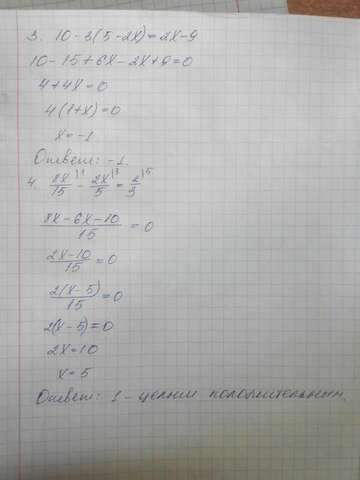 3. 10-3(5-2x)=2x-9
10-15+6x-2x+9=0
4+4x=0
4(1+x)=0
x=-1
Ответ: -1.
4. 8x/15 \1 - 2x/5 \3 = 2/3 \5
8x-6x-10/15 = 0
2x-10/15 = 0
2(x-5)/15 = 0
2(x-5)=0
2x=10
x=5
Ответ: 1 - целым положительным.